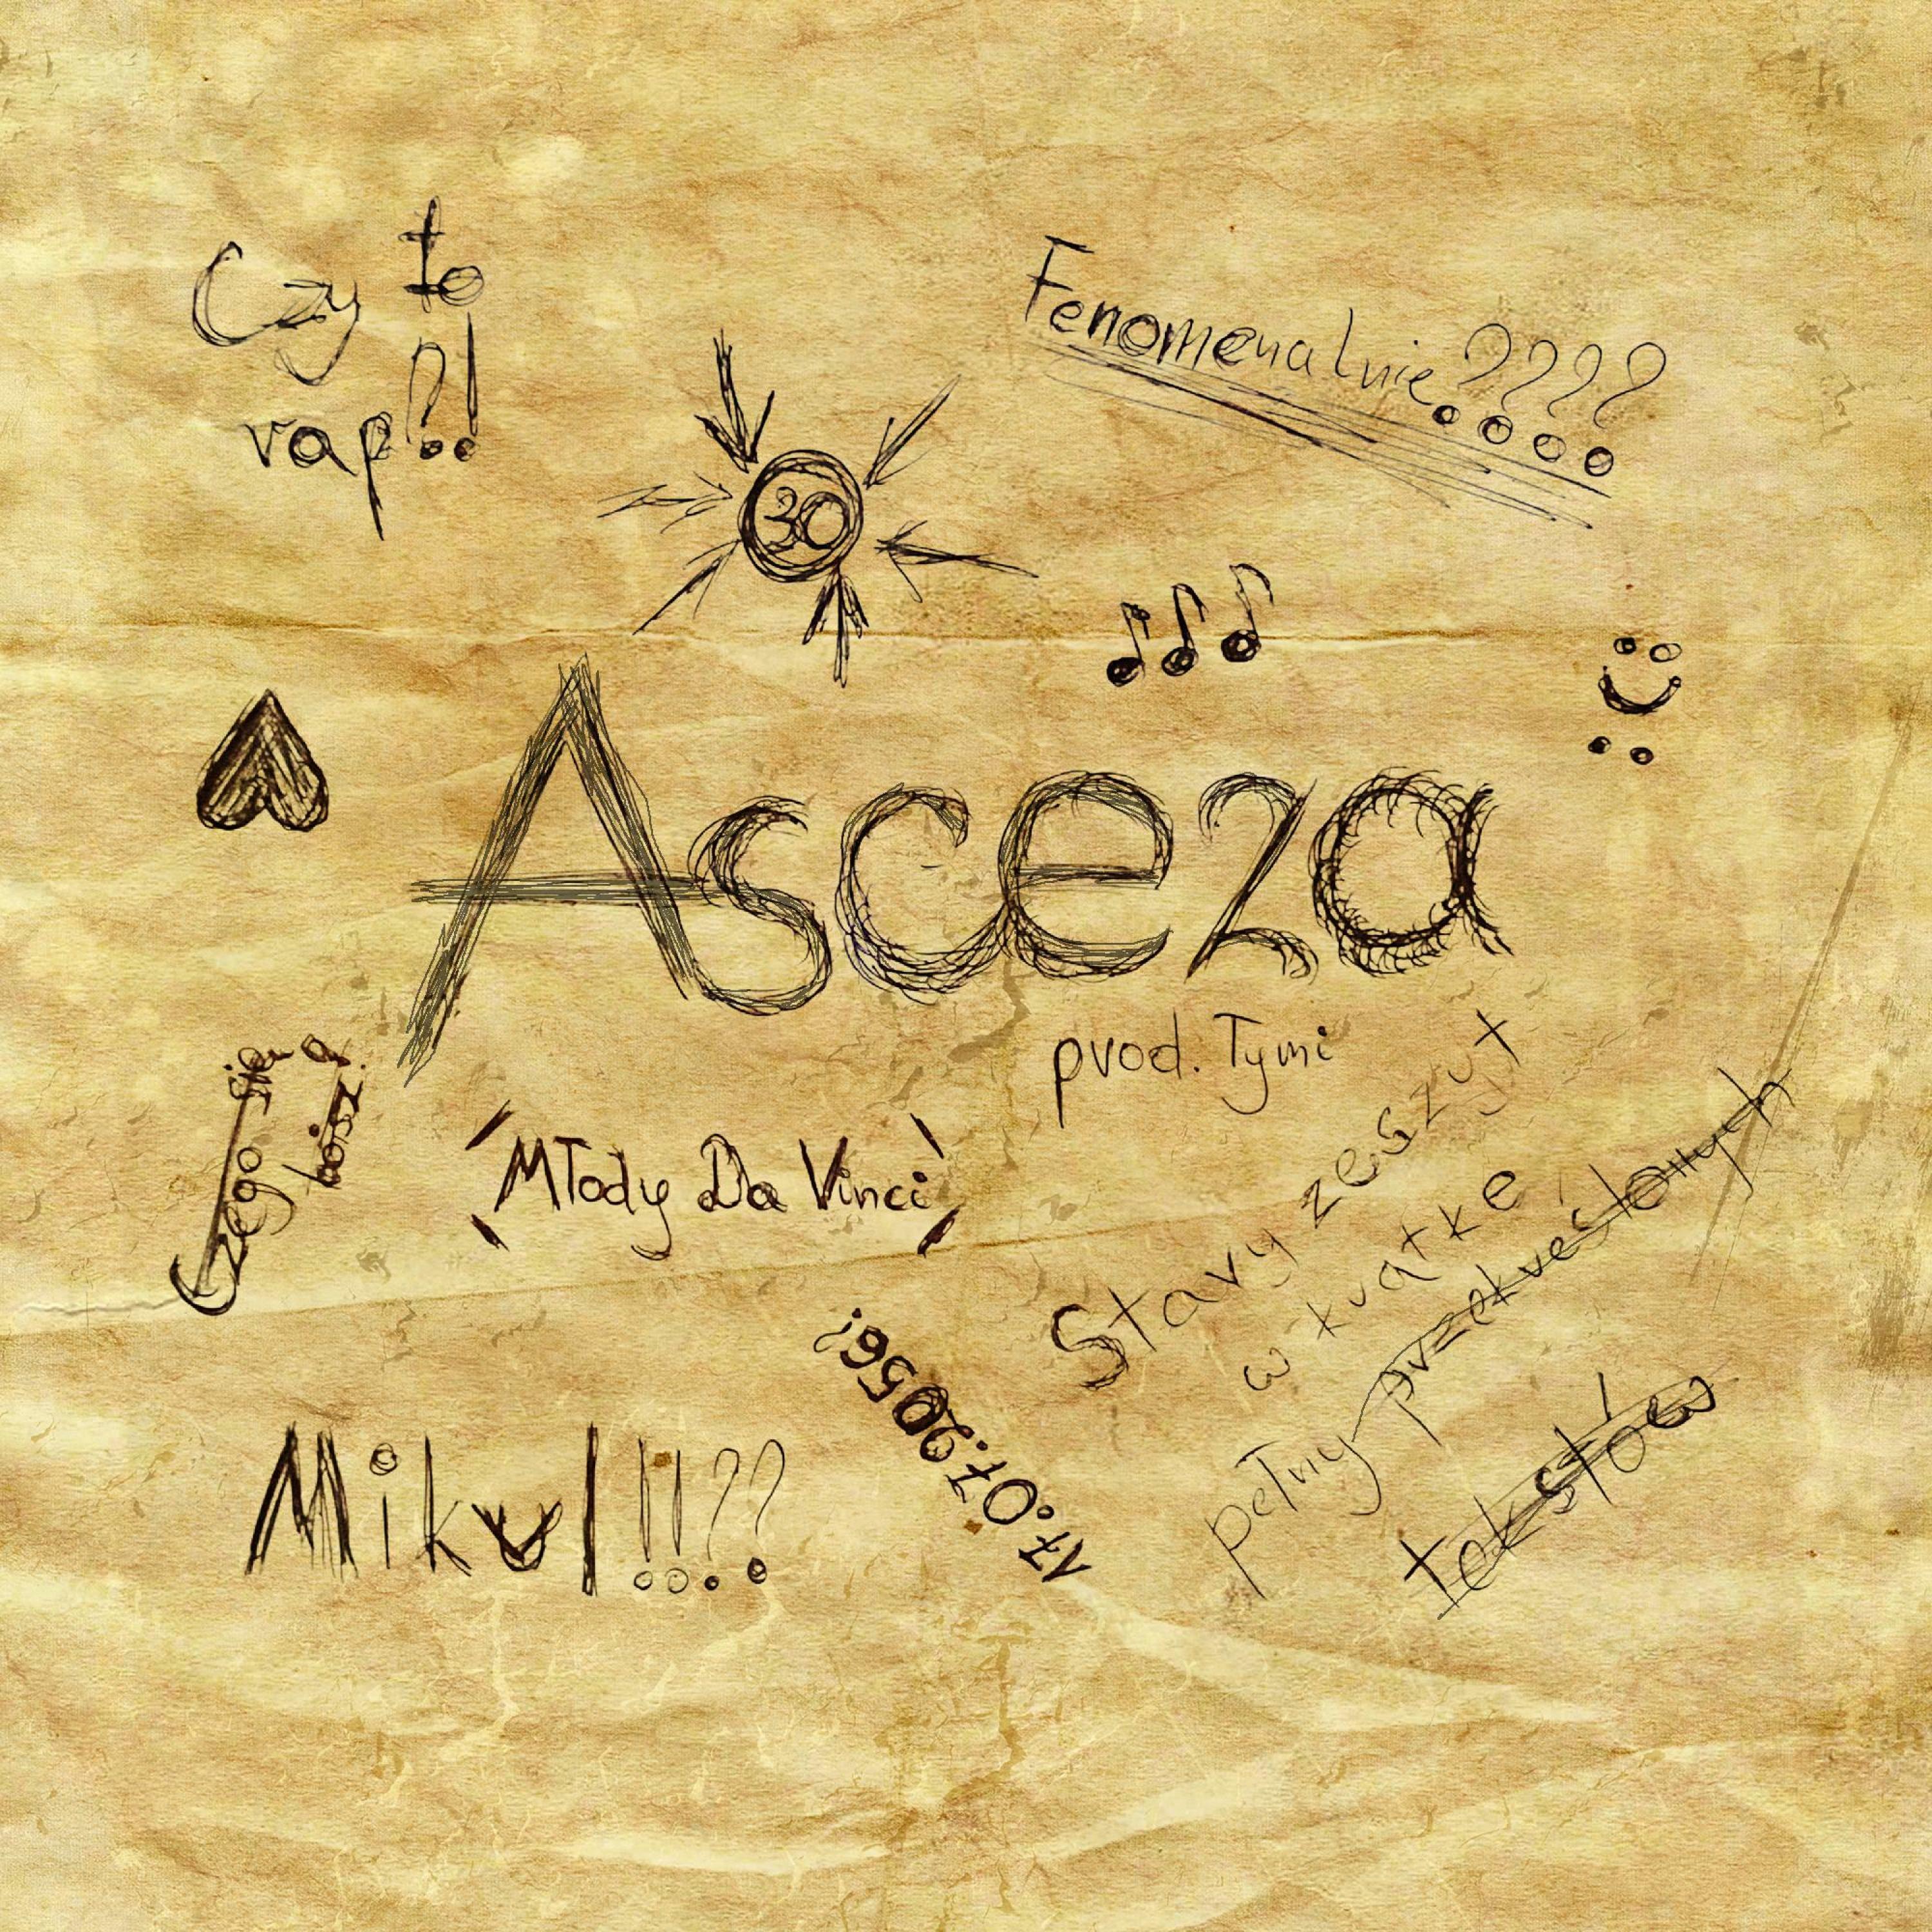 Czy to
rap?!
Fenomenalnie????
30
Asceza
prod. Tymi
Czego się
boisz?
"Młody Da Vinci"
Stary zeszyt
w kratkę
pełny przekreślonych
tekstów
17.07.2056?
Mikul!!??